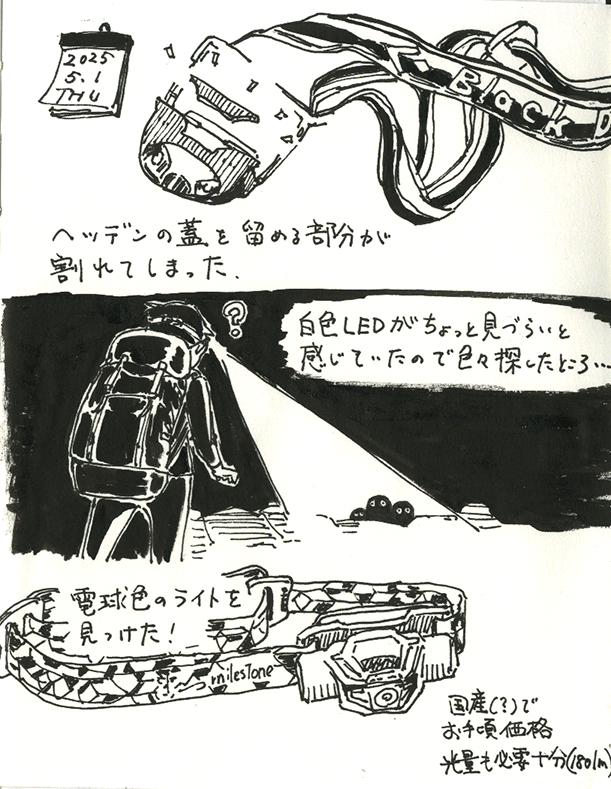 2025
5.1
THU
Black D
ヘッデンの蓋を留める部分が
割れてしまった.
?
白色LEDがちょっと見づらいと
感じていたので色々探したところ…
電球色のライトを
見つけた!
milesTone
国産(?)で
お手頃価格
光量も必要十分(180lm)